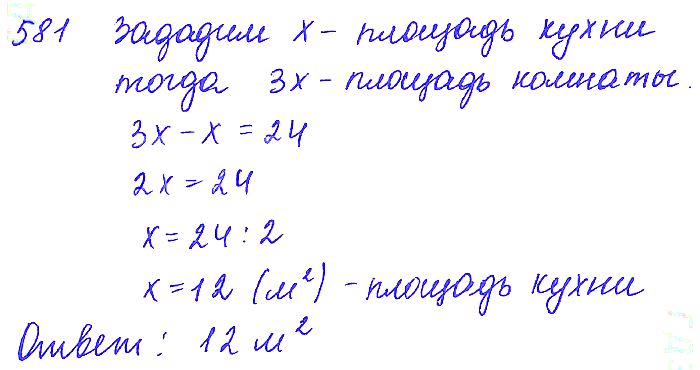 581 Зададим x - площадь кухни
тогда 3x - площадь комнаты.
3x - x = 24
2x = 24
x = 24 : 2
x = 12 (м²) - площадь кухни
Ответ: 12 м²